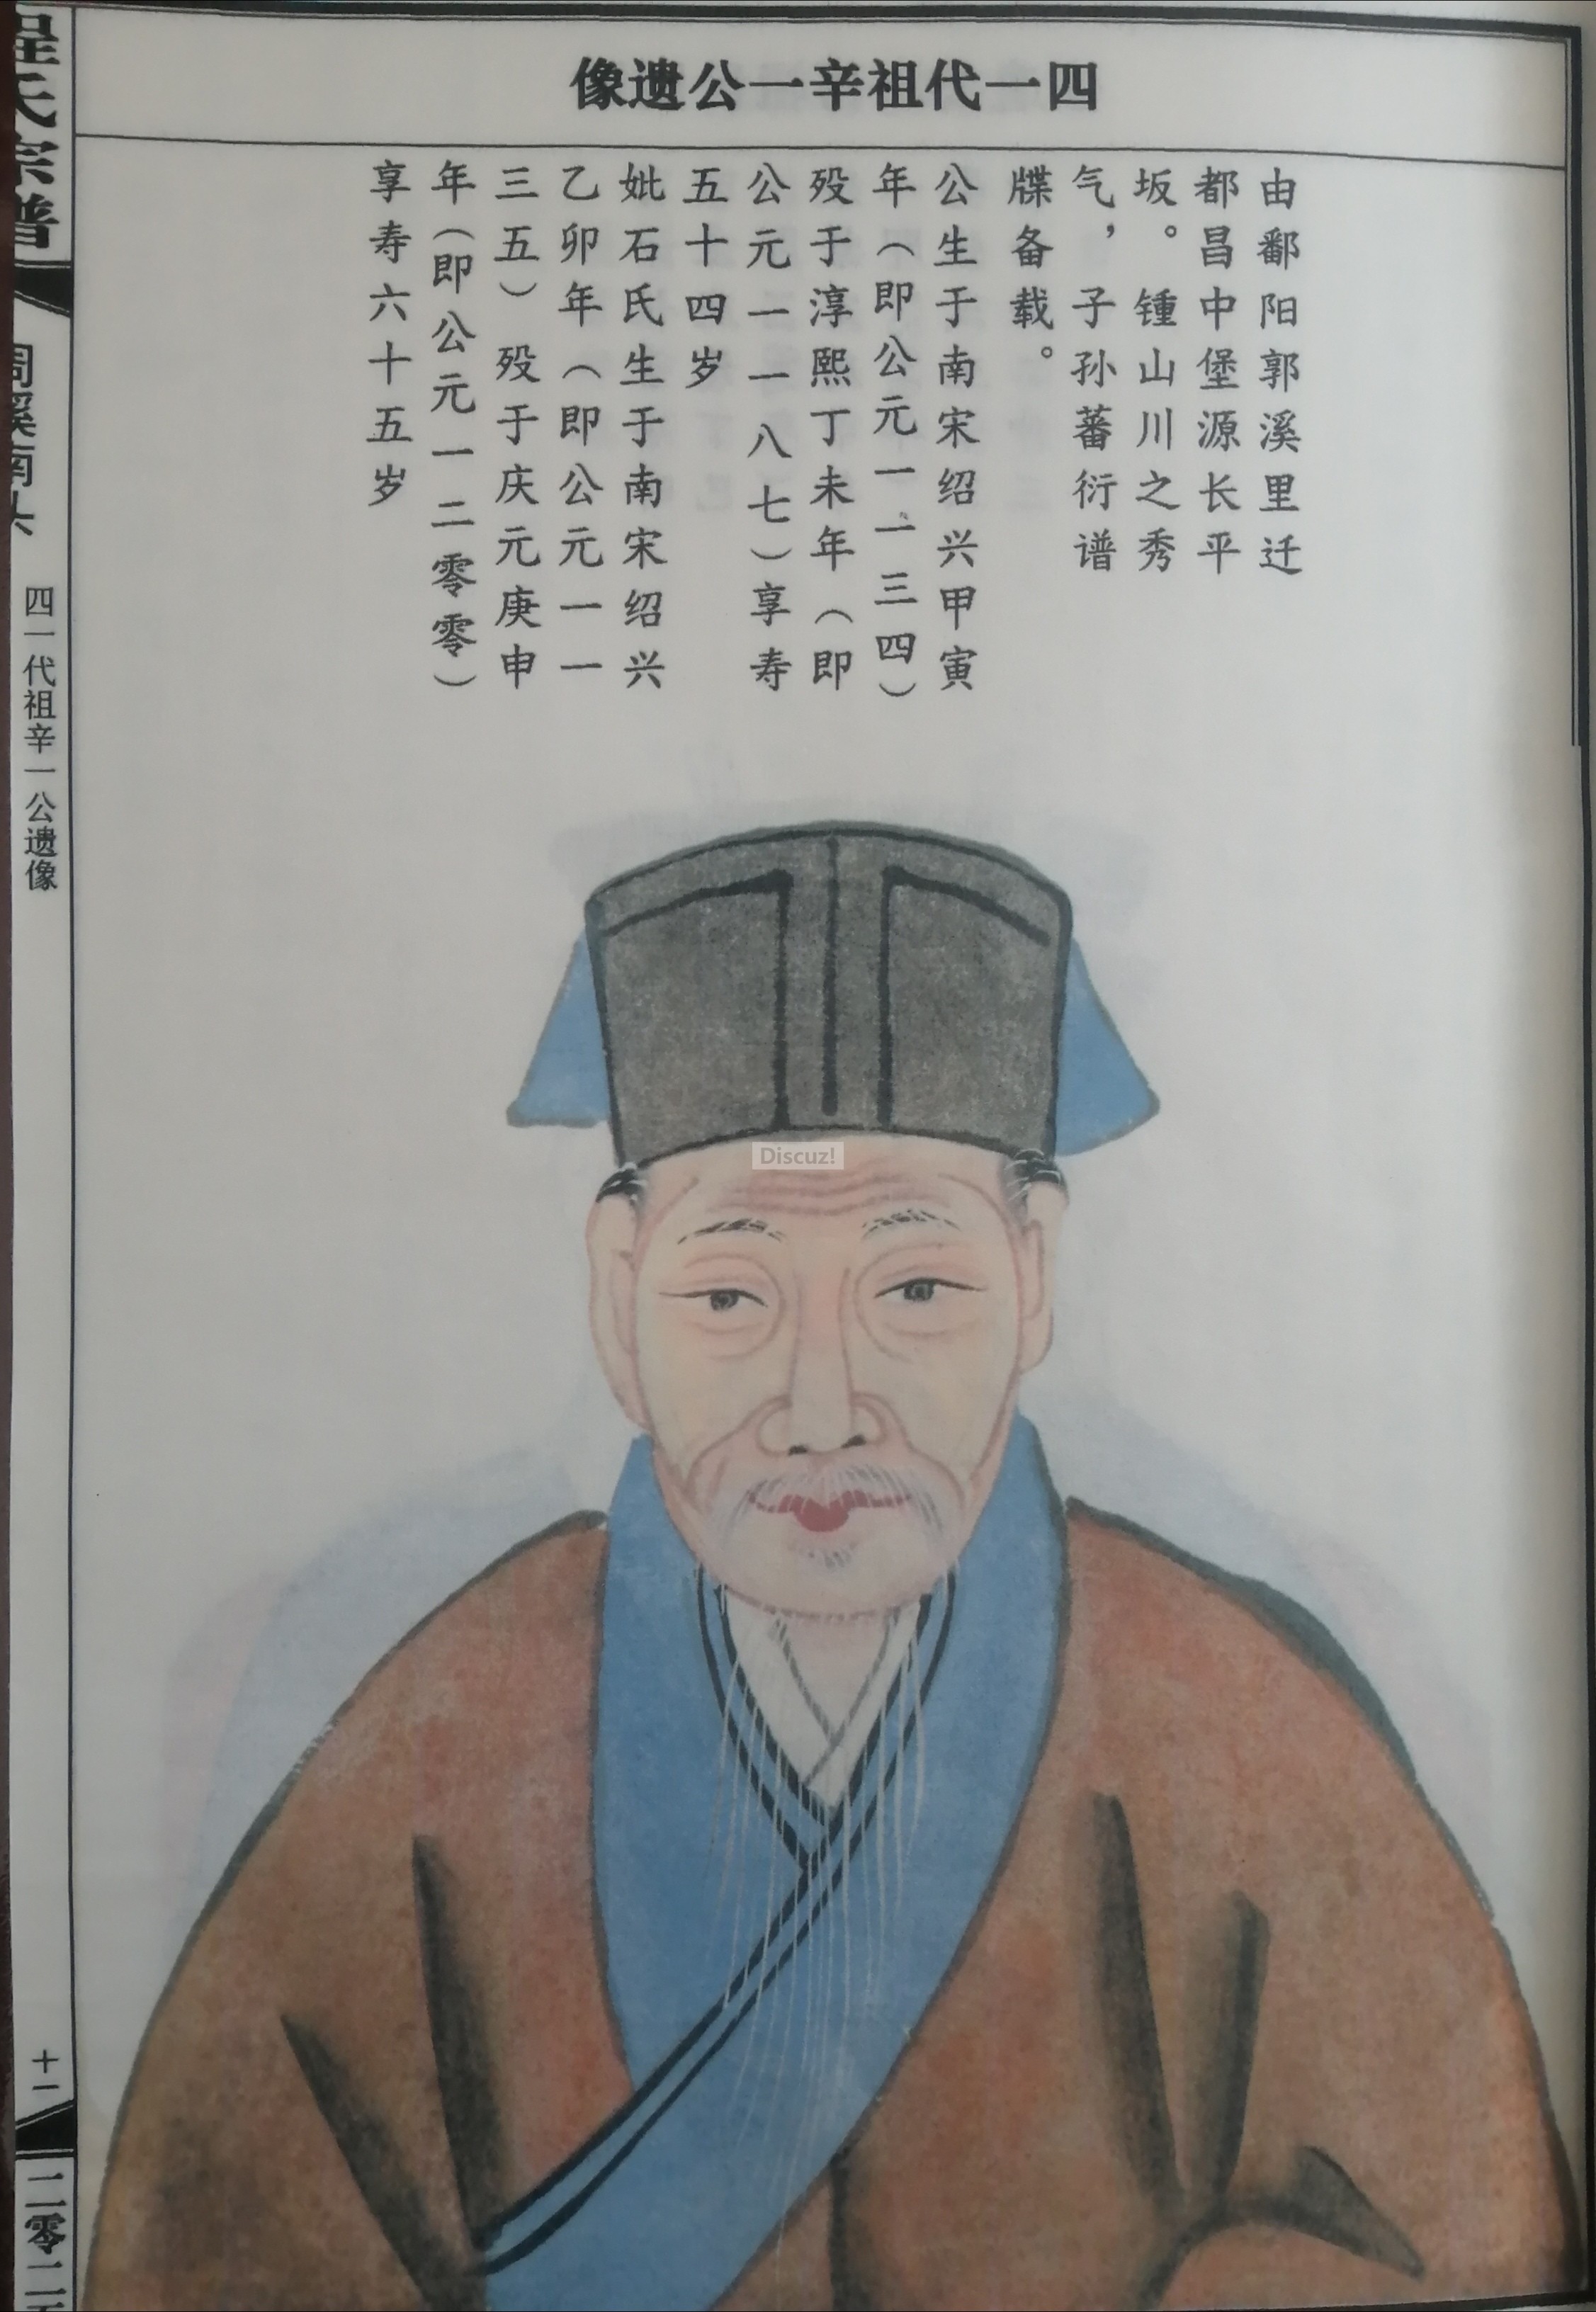 四一代祖辛一公遗像
由鄱阳郭溪里迁
都昌中堡源长平
坂。锺山川之秀
气，子孙蕃衍谱
牒备载。
公生于南宋绍兴甲寅
年（即公元一一三四）
殁于淳熙丁未年（即
公元一一八七）享寿
五十四岁
妣石氏生于南宋绍兴
乙卯年（即公元一一
三五）殁于庆元庚申
年（即公元一二零零）
享寿六十五岁
程氏宗谱
四一代祖辛一公遗像
十一
二零二
Discuz!